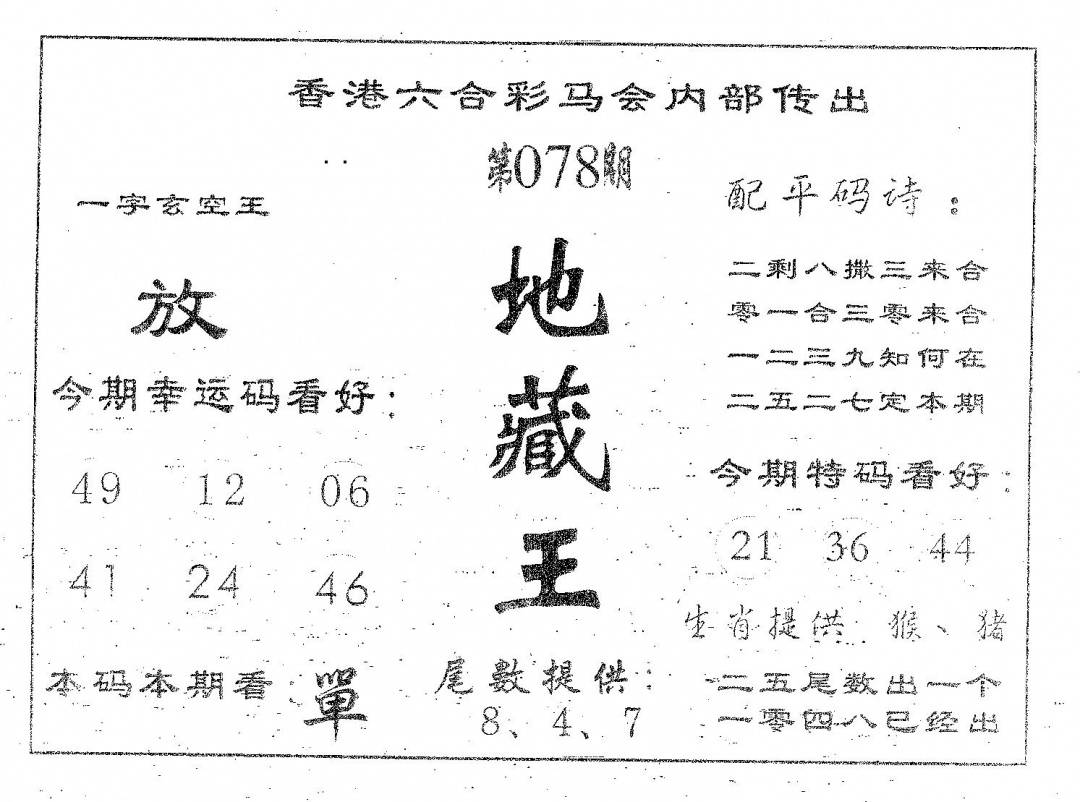 香港六合彩马会内部传出
第078期
一字玄空王
放
今期幸运码看好：
49 12 06
41 24 46
本码本期看：單
地
藏
王
尾數提供：
8、4、7
配平码诗：
二剩八撒三来合
零一合三零来合
一二三九知何在
二五二七定本期
今期特码看好：
21 36 44
生肖提供：猴、猪
二五尾数出一个
一零四八已经出